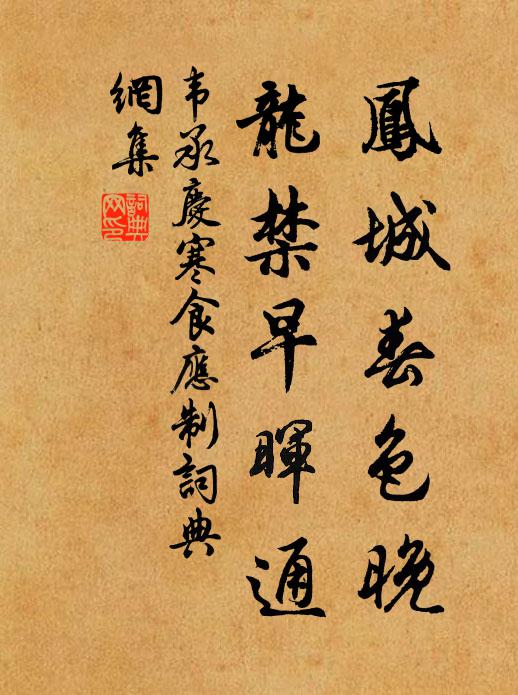 鳳城春色晚
龍禁早暉通
韦承慶寒食應制詞典
網集
詞典網印